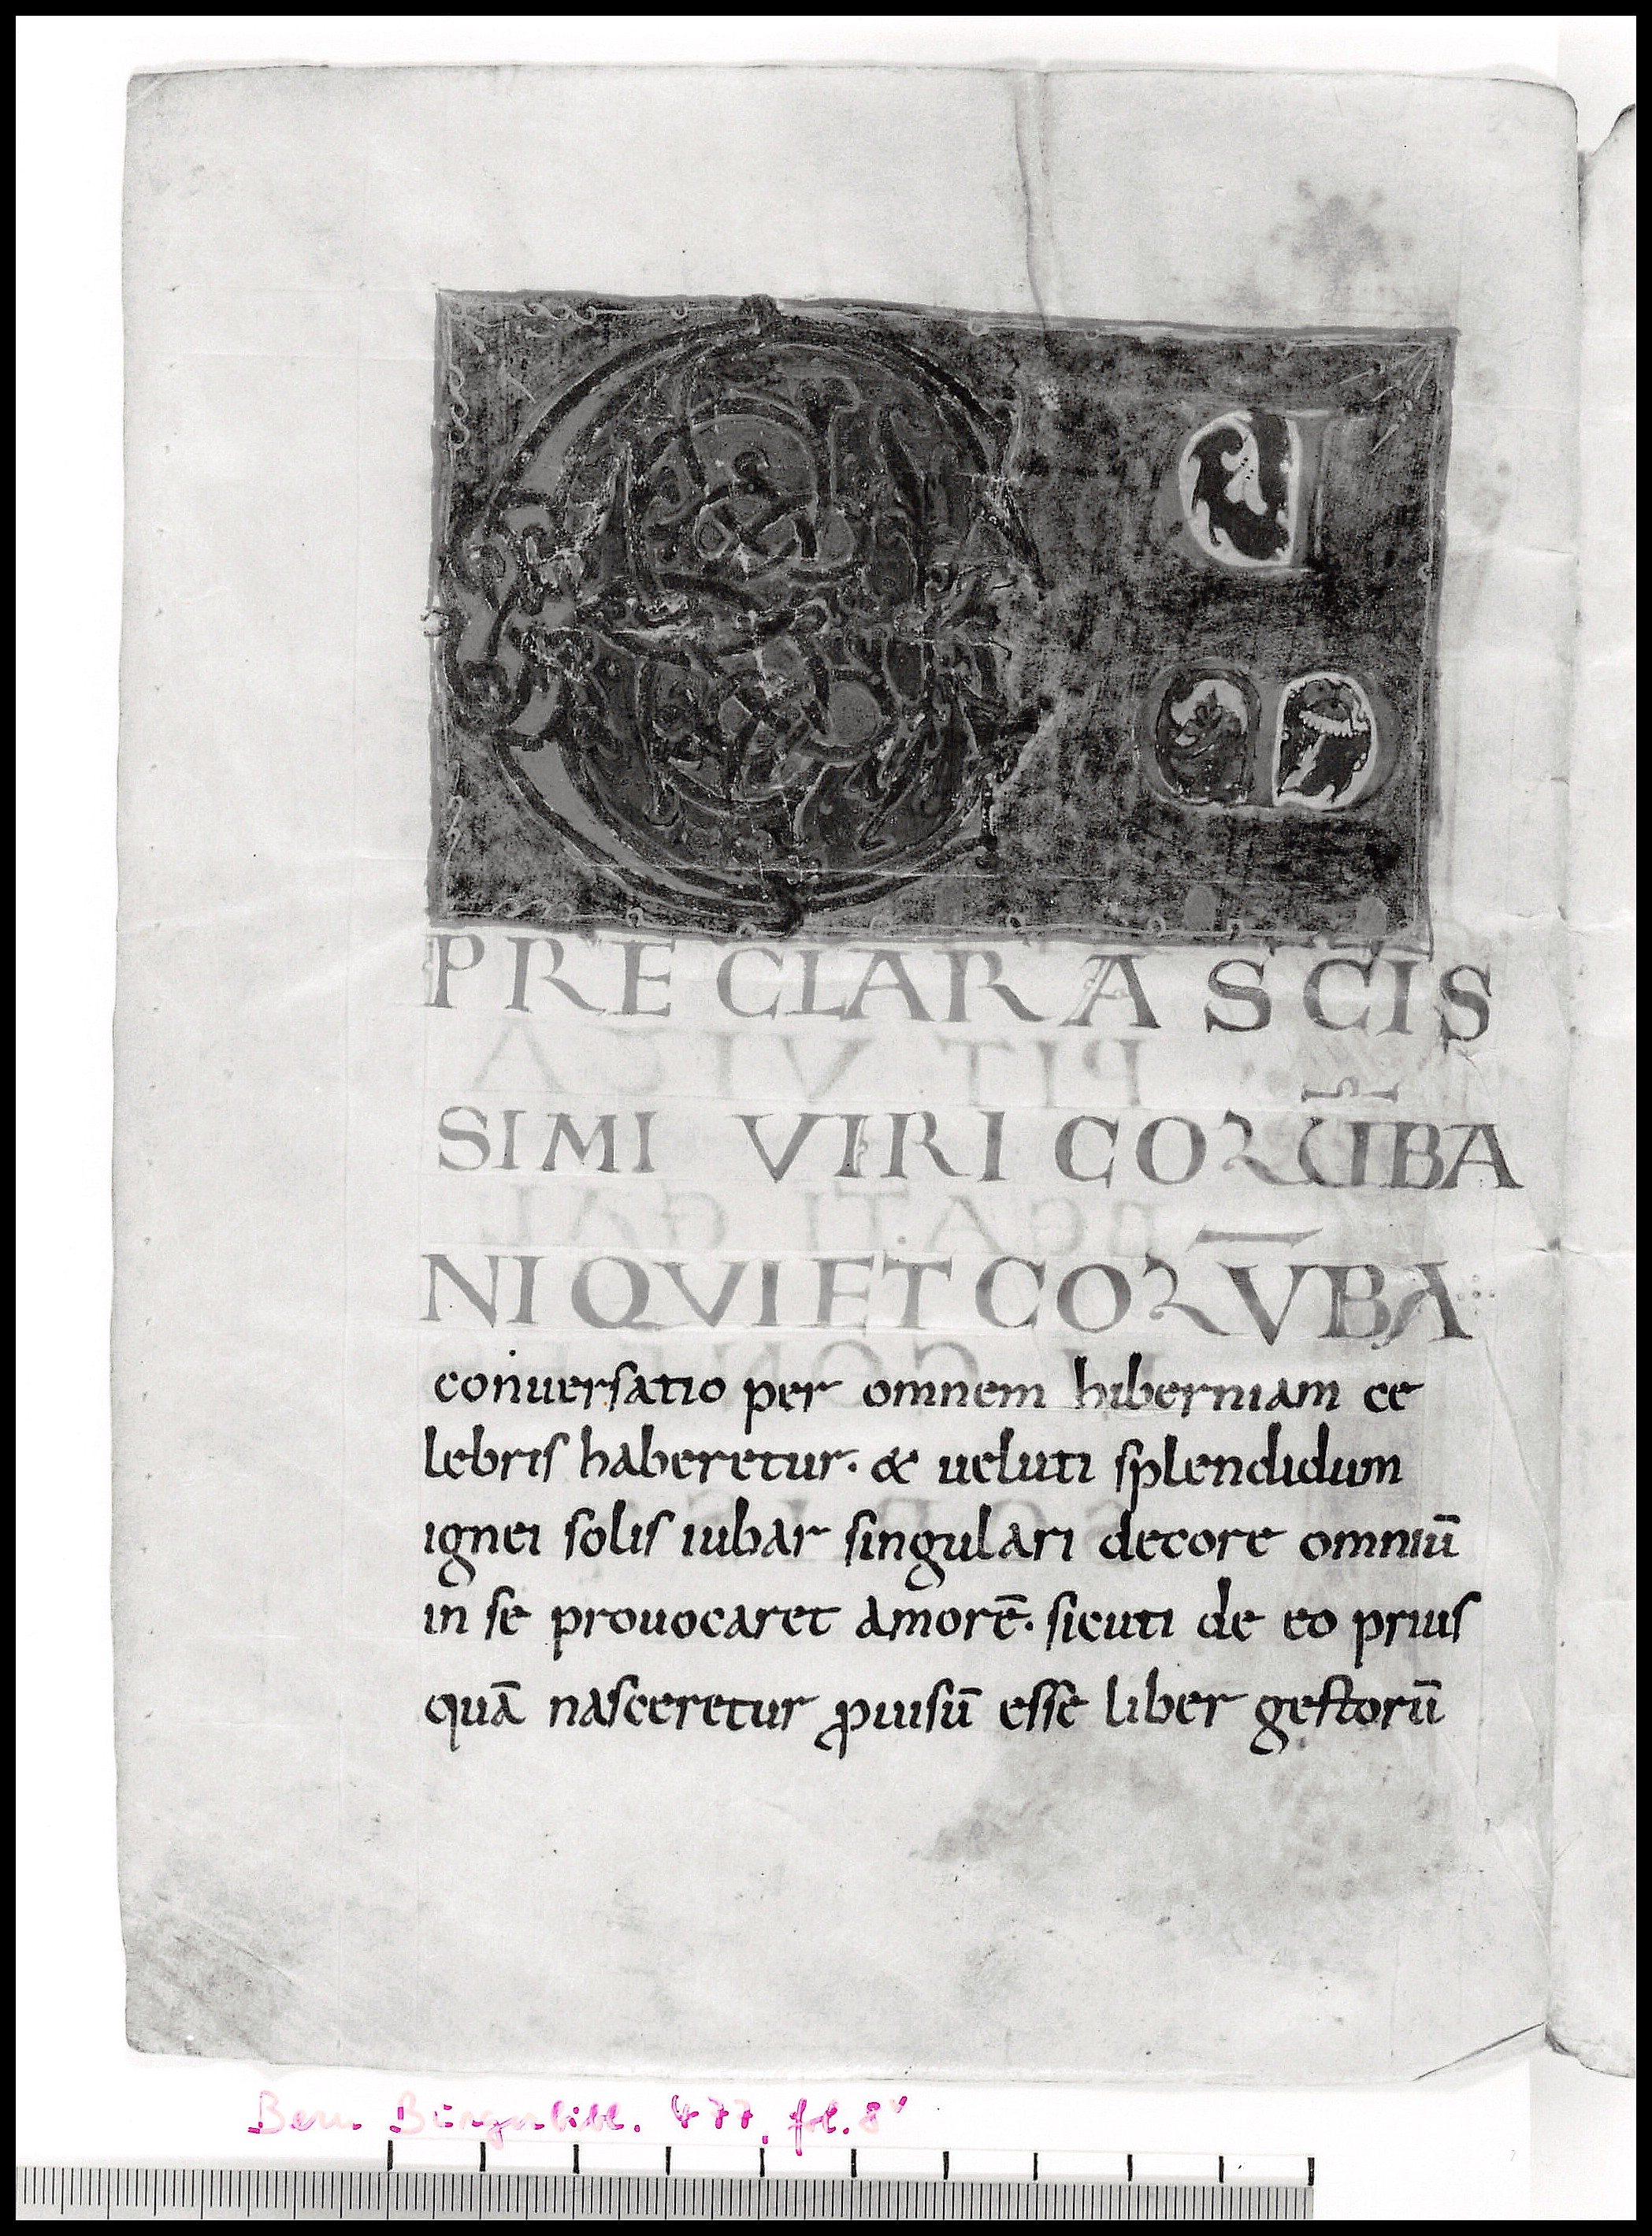 CUM
PRECLARA SCIS
SIMI VIRI COLŪBA
NI QVI ET COLV̄BA
conuersatio per omnem hiberniam ce
lebris haberetur. & ueluti splendidum
ignei solis iubar singulari decore omniū
in se prouocaret amorē. sicuti de eo prius
quā nasceretur ꝓuisū esse liber gestorū
Bern Burgerbibl. 477, fol. 8v